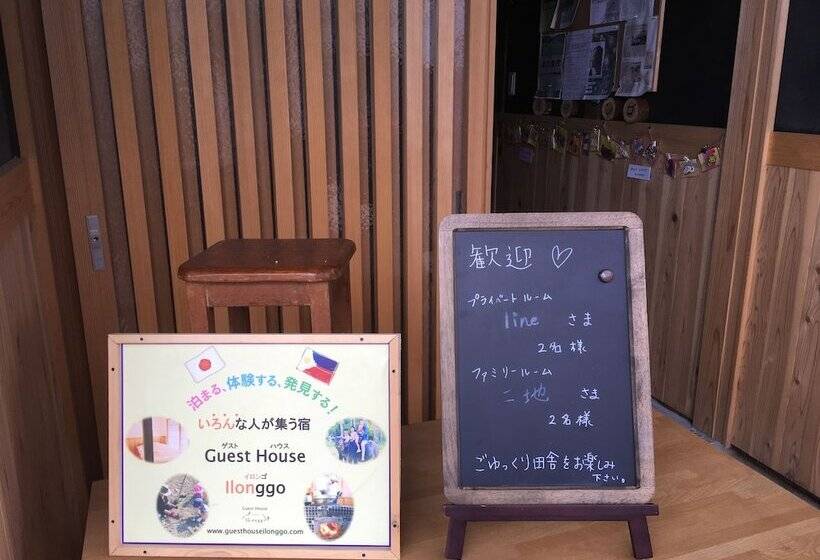 泊まる、体験する、発見する!
いろんな人が集う宿
ゲスト ハウス
Guest House
イロンゴ
Ilonggo
Guest House
www.guesthouseilonggo.com
歓迎♡
プライベートルーム
line さま
2名様
ファミリールーム
さま
2名様
ごゆっくり田舎をお楽しみ
下さい。